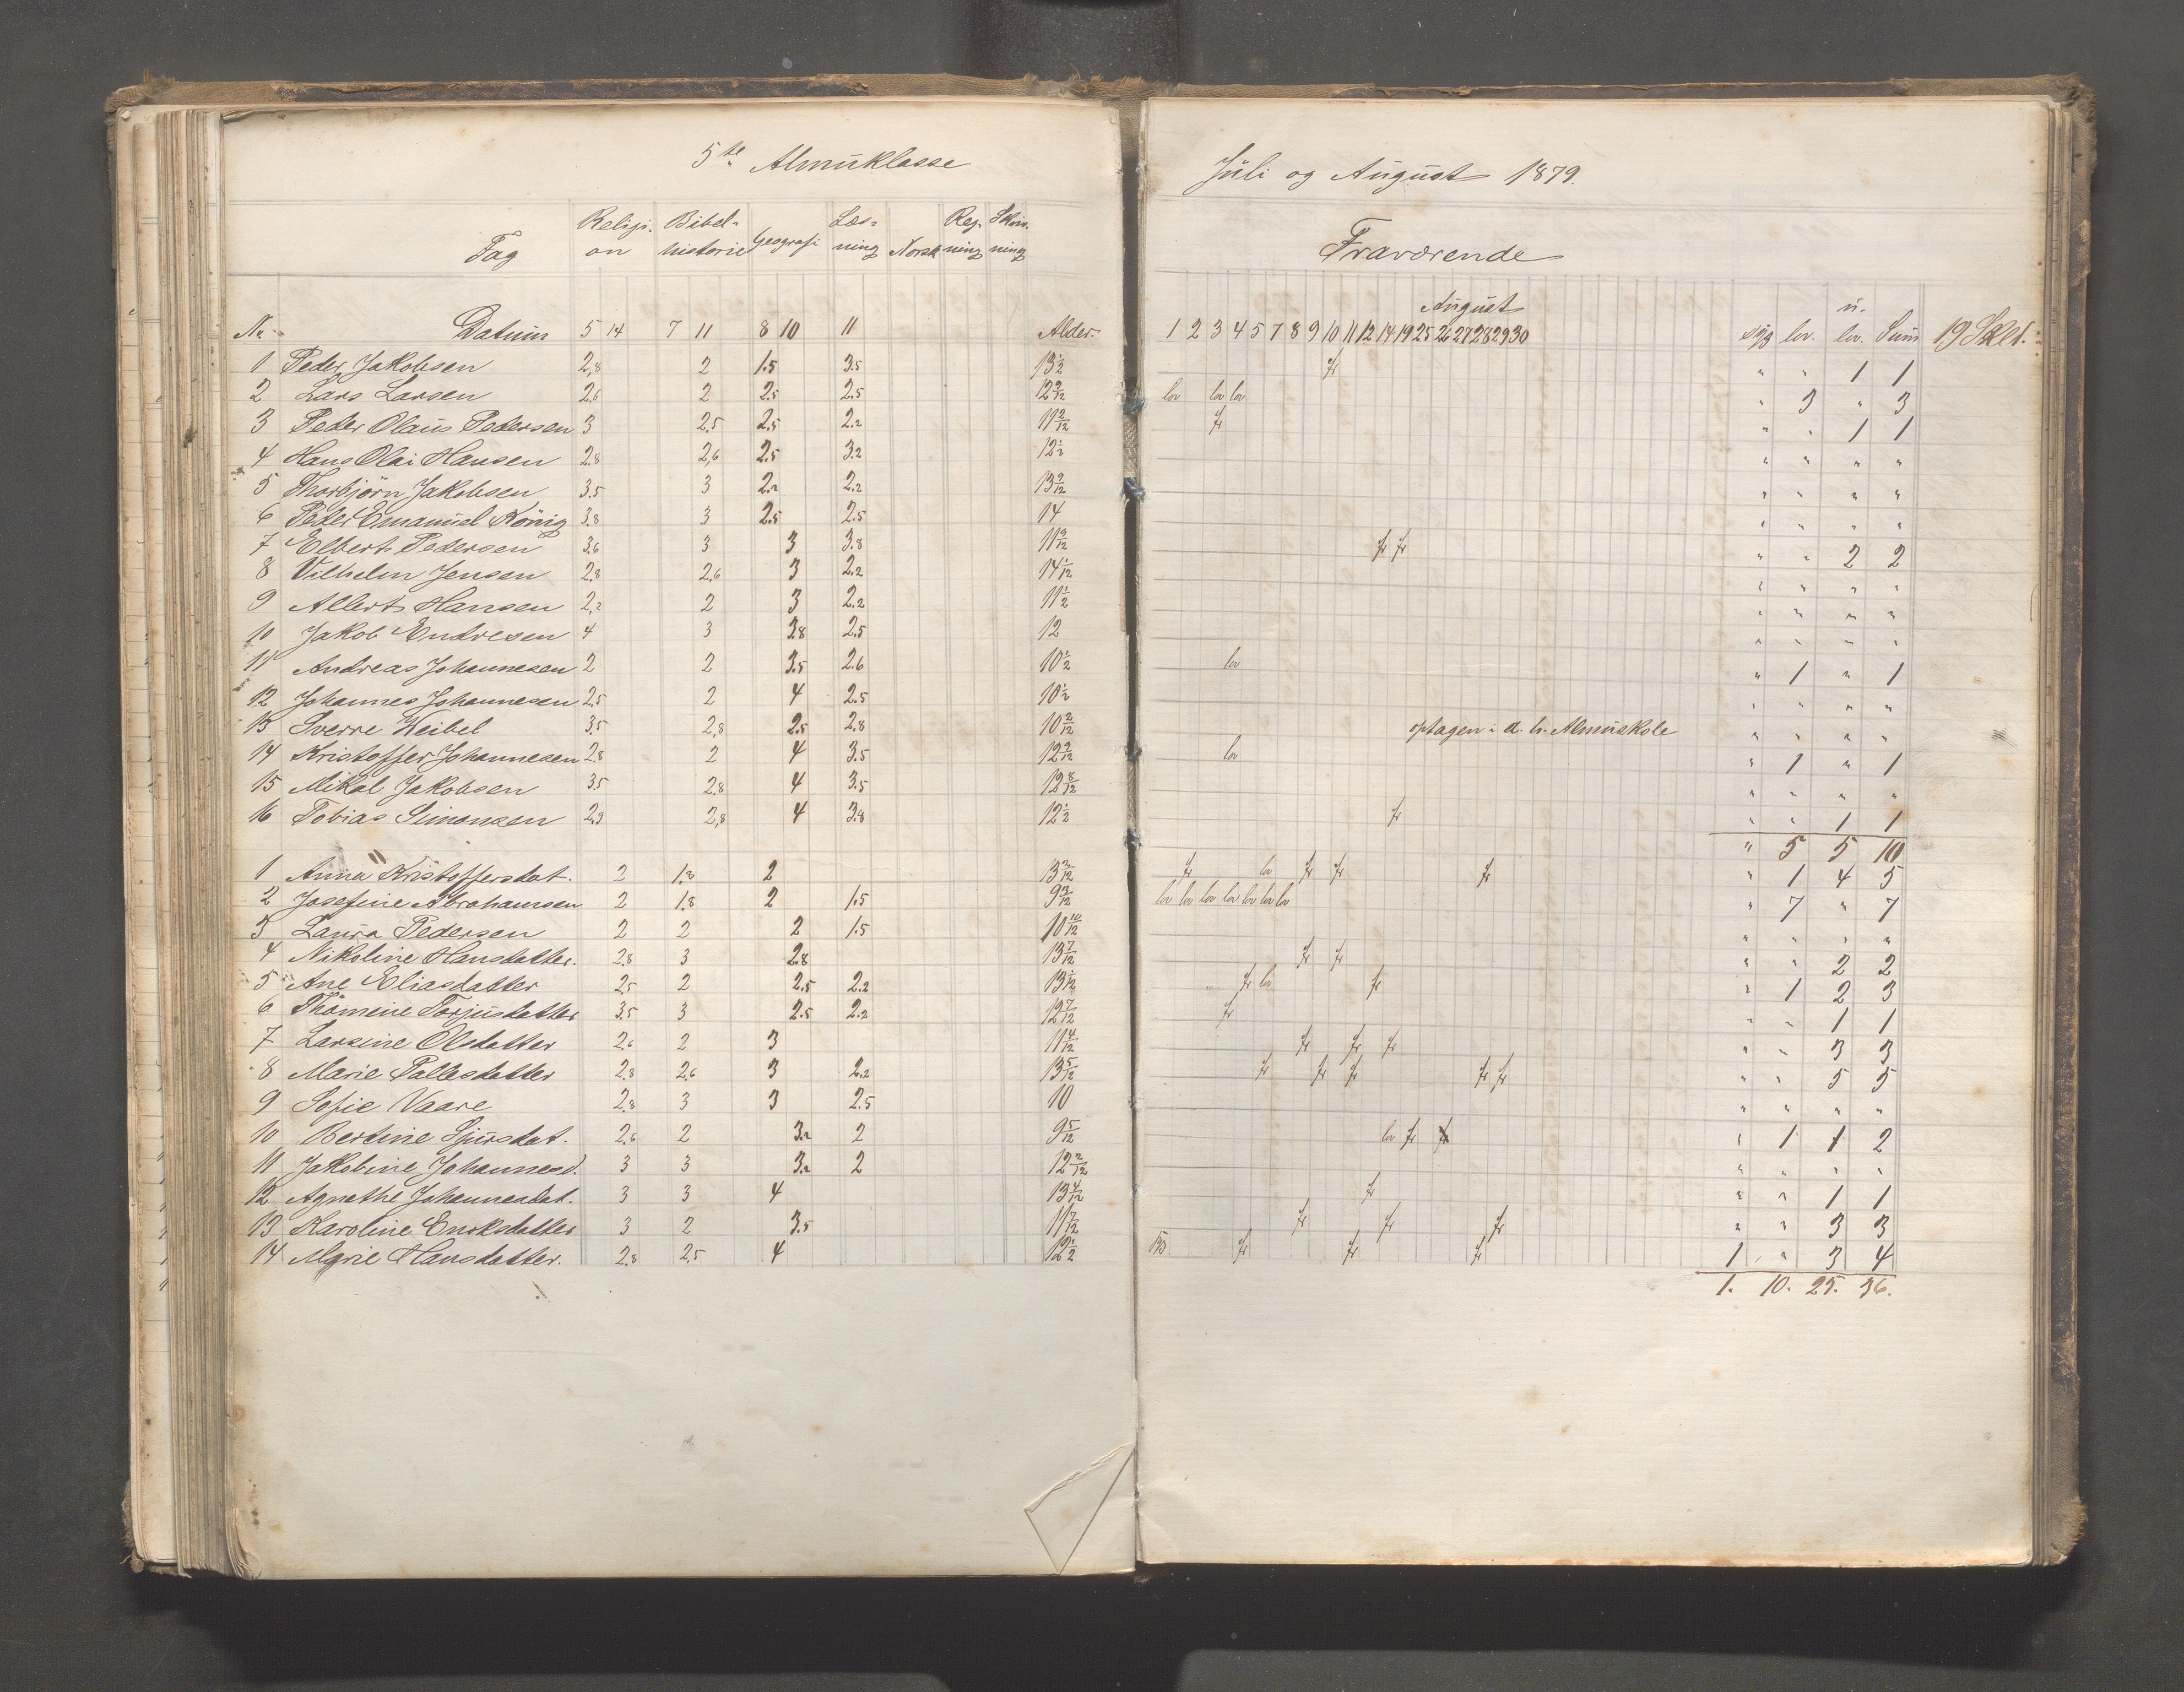 5te Almuklasse
Fag Religi- on Bibel- historie Geografi Læs- ning Norsk Reg- ning Skriv- ning
Nr. Datum 5 14 7 11 8 10 11 Alder.
1 Peder Jakobsen 2,8 2 1.5 3.5 13 1/2
2 Lars Larsen 2.6 2 2.5 2.5 12 9/12
3 Peder Olaus Pedersen 3 2.5 2.5 2.2 11 2/12
4 Hans Olai Hansen 2.8 2,6 2.5 3.2 12 1/2
5 Thorbjörn Jakobsen 3.5 3 2.2 2.2 13 9/12
6 Peder Emanuel König 3.8 3 2.5 2.5 14
7 Elbert Pedersen 3.6 3 3 3.8 11 9/12
8 Vilhelm Jensen 2.8 2.6 3 2.2 14 1/12
9 Albert Hansen 2,2 2 3 2.2 11 1/2
10 Jakob Endresen 4 3 3.8 2.5 12
11 Andreas Johannesen 2 2 3.5 2.6 10 1/2
12 Johannes Johannesen 2.5 2 4 2.5 10 1/2
13 Sverre Weibel 3.5 2,8 2.5 2,8 10 2/12
14 Kristoffer Johannesen 2.8 2 4 3.5 12 9/12
15 Mikal Jakobsen 3.5 2.8 4 3.5 12 8/12
16 Tobias Simonsen 2.9 2,8 4 3.8 12 1/2
1 Anna Kristoffersdat. 2 1.8 2 13 2/12
2 Josefine Abrahamsen 2 1.8 2 1.5 9 3/12
3 Laura Pedersen 2 2 2 1.5 10 10/12
4 Nikoline Hansdatter. 2.8 3 2.8 13 7/12
5 Ane Eliasdatter 2.5 2 2.5 2.2 13 1/12
6 Thomine Torjusdatter 3.5 3 2.5 2.2 12 7/12
7 Larsine Olsdatter 2.6 2 3 11 4/12
8 Marie Pallesdatter 2.8 2.6 3 2.2 13 5/12
9 Sofie Vaare 2.8 3 3 2.5 10
10 Bertine Sjursdat. 2.6 2 3.2 2 9 5/12
11 Jakobine Johannesd. 3 3 3.2 2 12 2/12
12 Agnethe Johannesdat. 3 3 4 13 4/12
13 Karoline Enoksdatter 3 2 3.5 11 7/12
14 Marie Hansdatter. 2.8 2.5 4 12 1/2
Juli og August 1879.
Fraværende
August
1 2 3 4 5 7 8 9 10 11 12 14 19 25 26 27 28 29 30 syg lov. u. lov. Sum 19 Skld.
fr " " 1 1
lov lov lov " 3 " 3
fr " " 1 1
" " " "
" " " "
" " " "
fr fr " " 2 2
" " " "
" " " "
" " " "
lov " 1 " 1
" " " "
optagen i d. h. Almuskole " " " "
lov " 1 " 1
" " " "
fr " " 1 1
" 5 5 10
fr lov fr fr fr " 1 4 5
lov lov lov lov lov lov lov " 7 " 7
" " " "
fr fr " " 2 2
fr lov fr " 1 2 3
fr " " 1 1
fr fr fr " " 3 3
fr fr fr fr fr " " 5 5
" " " "
lov fr fr " 1 1 2
" " " "
fr " " 1 1
fr fr fr " " 3 3
fr fr fr 1 " 3 4
1. 10. 25. 36.